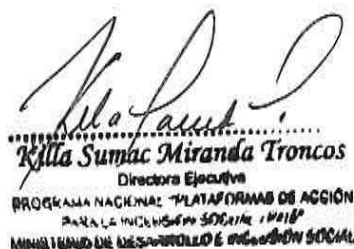 Killa Sumac Miranda Troncos
Directora Ejecutiva
PROGRAMA NACIONAL "PLATAFORMAS DE ACCIÓN
PARA LA INCLUSIÓN SOCIAL
MINISTERIO DE DESARROLLO E INCLUSIÓN SOCIAL